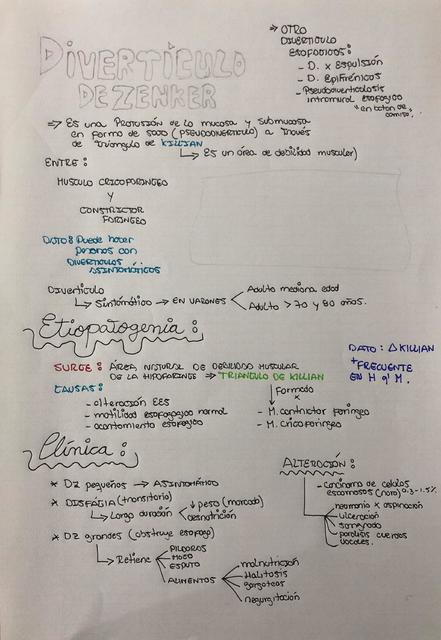 DIVERTÍCULO
DE ZENKER
⇒ OTRO
DIVERTICULO
ESOFÁGICOS:
- D. x Expulsión
- D. Epifrénicos
- Pseudodiverticulosis
intramural esofágico
"en boton de
camisa"
⇒ Es una Protusión de la mucosa y submucosa
en forma de saco (PSEUDODIVERTICULO) a través
de triángulo de KILLIAN
↳ Es un área de debilidad muscular)
ENTRE:
MUSCULO CRICOFARINGEO
Y
CONSTRICTOR
FARINGEO
DATO: Puede haber
personas con
DIVERTICULOS
ASINTOMÁTICOS
Diverticulo
↳ Sintomático → EN VARONES
Adulto mediana edad
Adulto > 70 y 80 años.
Etiopatogenia:
DATO: Δ KILLIAN
+ FRECUENTE
EN H q' M.
SURGE: ÁREA NATURAL DE DEBILIDAD MUSCULAR
DE LA HIPOFARINGE → TRIANGULO DE KILLIAN
CAUSAS:
- alteración EES
- motilidad esofagagica normal
- acortamiento esofagico
Formado
x
- M. contrictor faringeo
- M. cricofaringeo
Clínica:
* DZ pequeños → ASINTOMÁTICO
* DISFAGIA (transitoria)
↳ Larga duración
↓ peso (marcado)
desnutrición
* DZ grandes (obstruye esofago)
↳ Retiene
PILDORAS
MOCO
ESPUTO
ALIMENTOS
malnutrición
Halitosis
gorgoteos
regurgitación
ALTERACIÓN:
- Carcinoma de celulas
escamosas (raro) 0.3-1.5%
neumonia x aspiración
ulceración
sangrado
paralisis cuerdas
vocales.